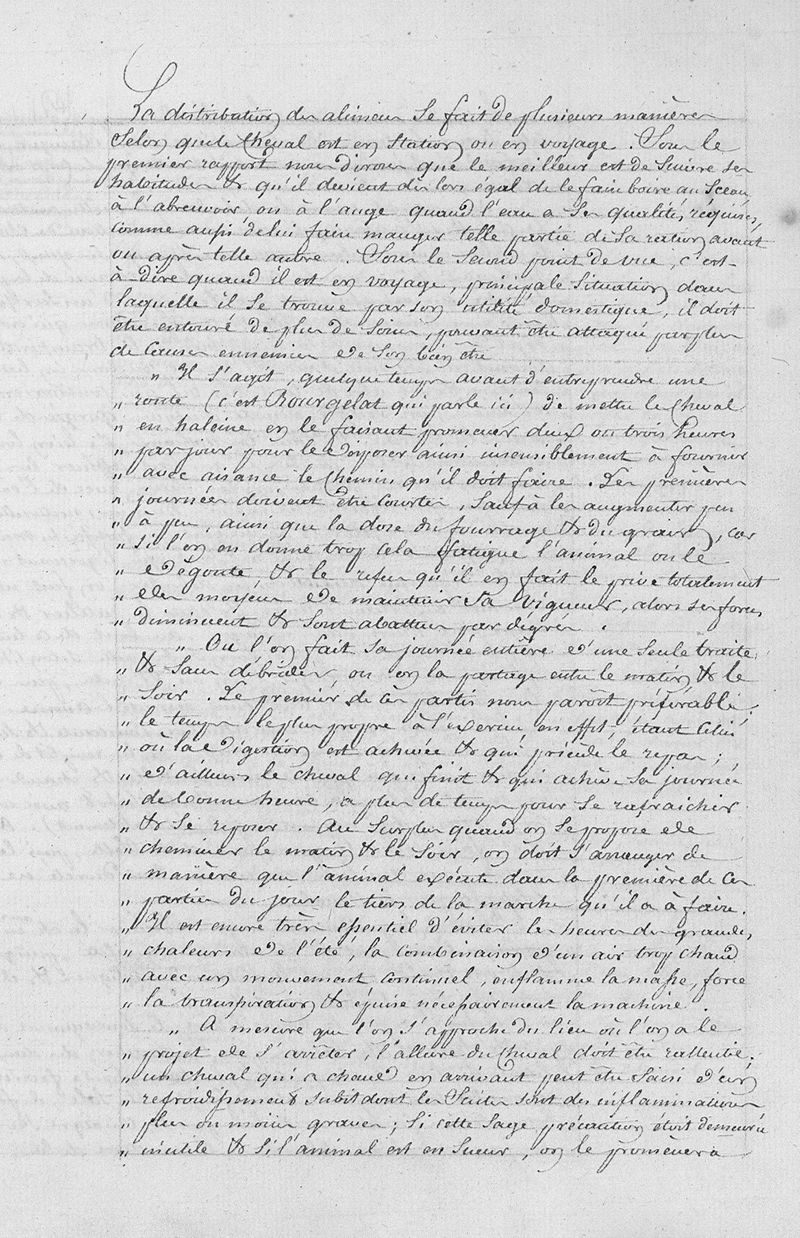 La distribution des alimens se fait de plusieurs manières
selon que le Cheval est en station ou en voyage. Sous le
premier rapport nous dirons que le meilleur est de suivre ses
habitudes & qu'il devient dès lors égal de le faire boire au sceau,
à l'abreuvoir ou à l'auge quand l'eau a ses qualités réquises,
comme aussi de lui faire manger telle partie de sa ration avant
ou après telle autre. Sous le second point de vue, c'est-
à-dire quand il est en voyage, principale situation dans
laquelle il se trouve par son utilité domestique, il doit
être entouré de plus de soins, pouvant être attaqué par plus
de causes ennemies de son bien être
" Il s'agit, quelque tems avant d'entreprendre une
" route (c'est Bourgelat qui parle ici) de mettre le Cheval
" en haleine en le faisant promener deux ou trois heures
" par jour pour le disposer ainsi insensiblement à fournir
" avec aisance le chemin qu'il doit faire. Les premières
" journées doivent être courtes, sauf à les augmenter peu
" à peu, ainsi que la dose du fourrage & du grain, car
" si l'on en donne trop cela fatigue l'animal ou le
" dégoute, & le refus qu'il en fait le prive totalement
" des moyens de maintenir sa vigueur, alors ses forces
" diminuent & sont abattues par dégrés.
" Ou l'on fait sa journée entière d'une seule traite
" & sans débrider, ou on la partage entre le matin & le
" soir. Le premier de ces partis nous paroît préférable;
" le temps le plus propre à l'exercice, en effet, étant celui
" où la digestion est achevée & qui précède le repas;
" d'ailleurs le cheval qui finit & qui achève sa journée
" de bonne heure, a plus de temps pour se rafraichir
" & se reposer. Au surplus quand on se propose de
" cheminer le matin & le soir, on doit s'arranger de
" manière que l'animal exécute dans la première de ces
" parties du jour le tiers de la marche qu'il a à faire.
" Il est encore très essentiel d'éviter les heures des grandes
" chaleurs de l'été, la combinaison d'un air trop chaud
" avec un mouvement continuel, enflamme la masse, force
" la transpiration & épuise nécessairement la machine.
" A mesure que l'on s'approche du lieu où l'on a le
" projet de s'arrêter, l'allure du Cheval doit être rallentie;
" un cheval qui a chaud en arrivant peut être saisi d'un
" refroidissement subit dont les suites sont des inflammations
" plus ou moins graves; si cette sage précaution étoit demeurée
" inutile & si l'animal est en sueur, on le promènera